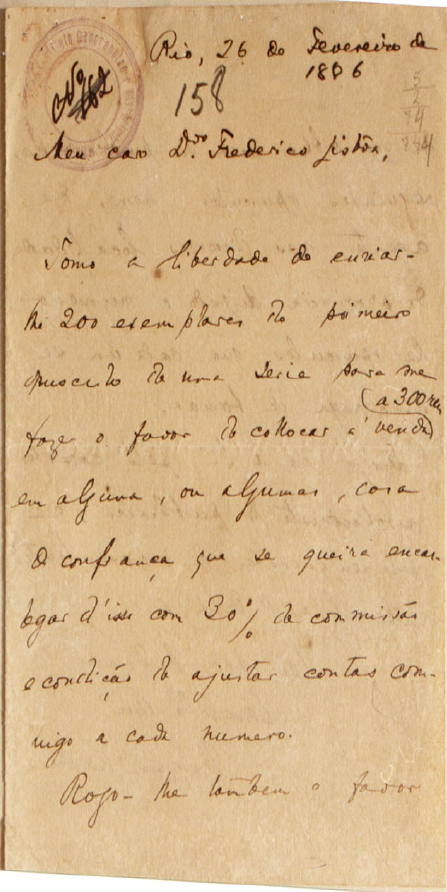 Nº 162
158
Rio, 26 de Fevereiro de
1886
Meu caro Dr. Frederico Lisbôa,
Tomo a liberdade de enviar-
lhe 200 exemplares do primeiro
opusculo de uma serie para me
(a 300 reis)
fazer o favor de collocar á venda
em alguma, ou algumas, casa
de confiança que se queira encar-
regar d'isso com 30% de commissão
e condição de ajustar contas com-
migo a cada numero.
Rogo-lhe tambem o favor